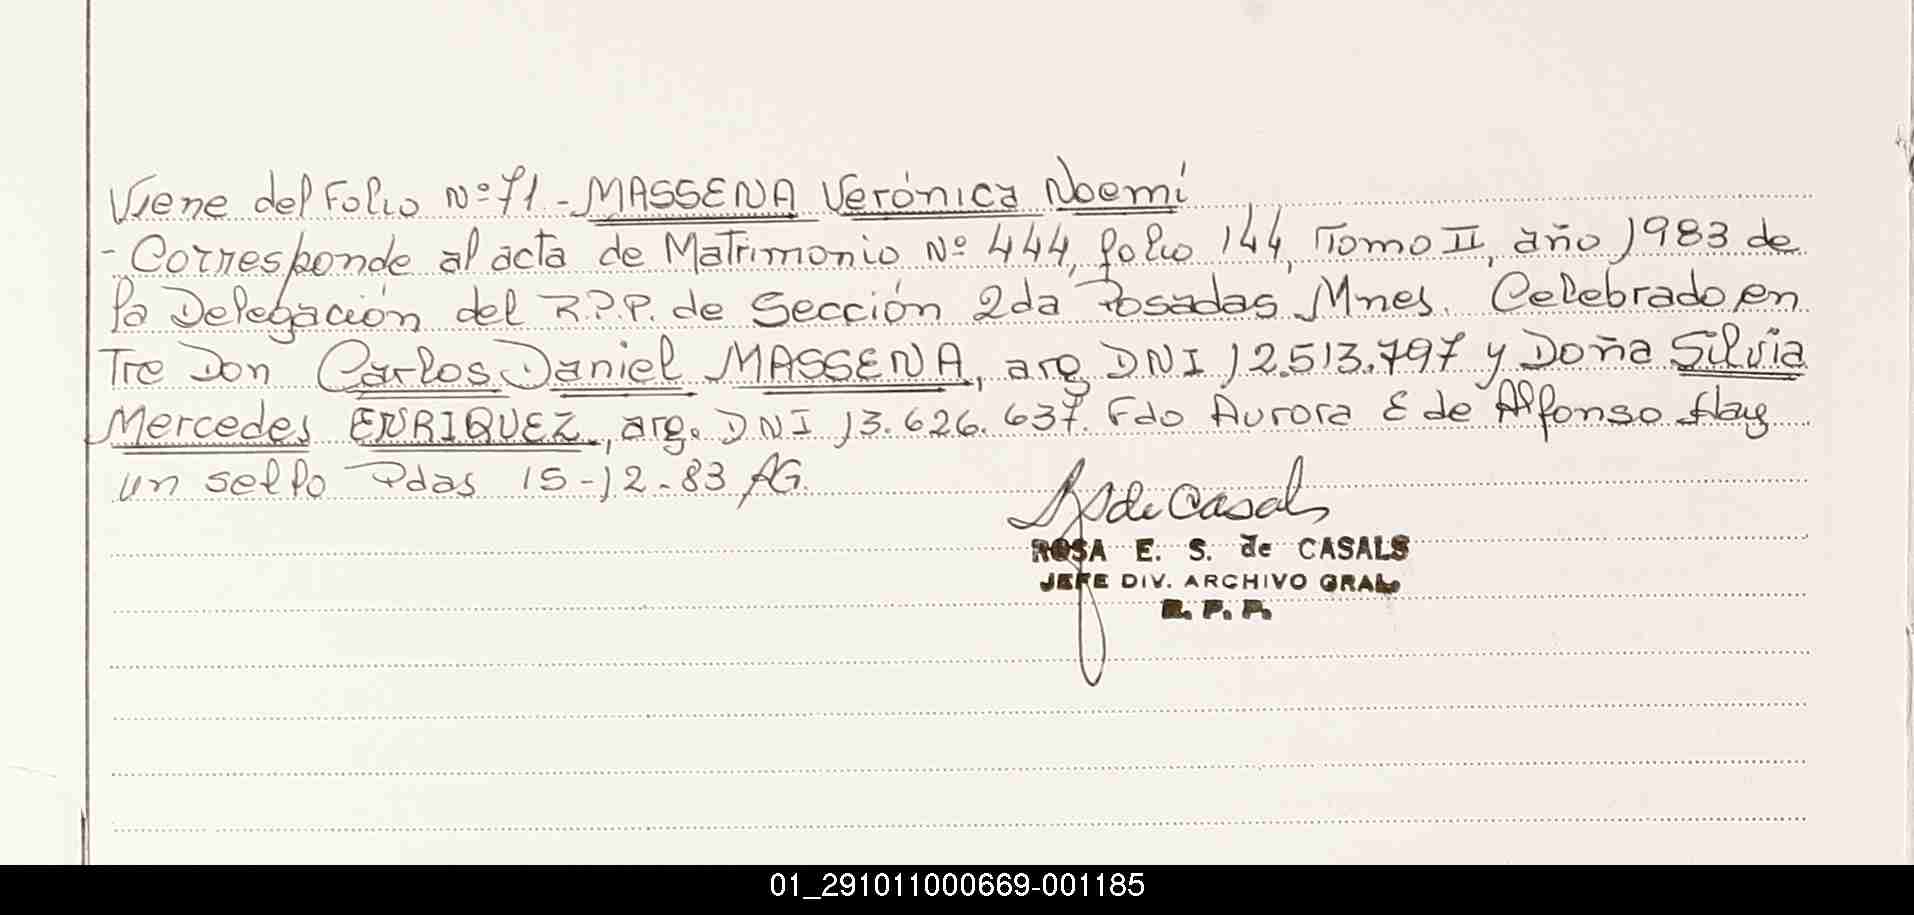 Viene del Folio Nº 71 - MASSENA Verónica Noemí
- Corresponde al acta de Matrimonio Nº 444, folio 144, Tomo II, año 1983 de
la Delegación del R.P.P. de Sección 2da Posadas Mnes. Celebrado en
Tre Don Carlos Daniel MASSENA, arg DNI 12.513.797 y Doña Silvia
Mercedes ENRIQUEZ, arg. DNI 13.626.637. Fdo Aurora E de Alfonso Hay
un sello Pdas 15-12-83 AG.
de Casals
ROSA E. S. de CASALS
JEFE DIV. ARCHIVO GRAL
R. P. P.
01_291011000669-001185